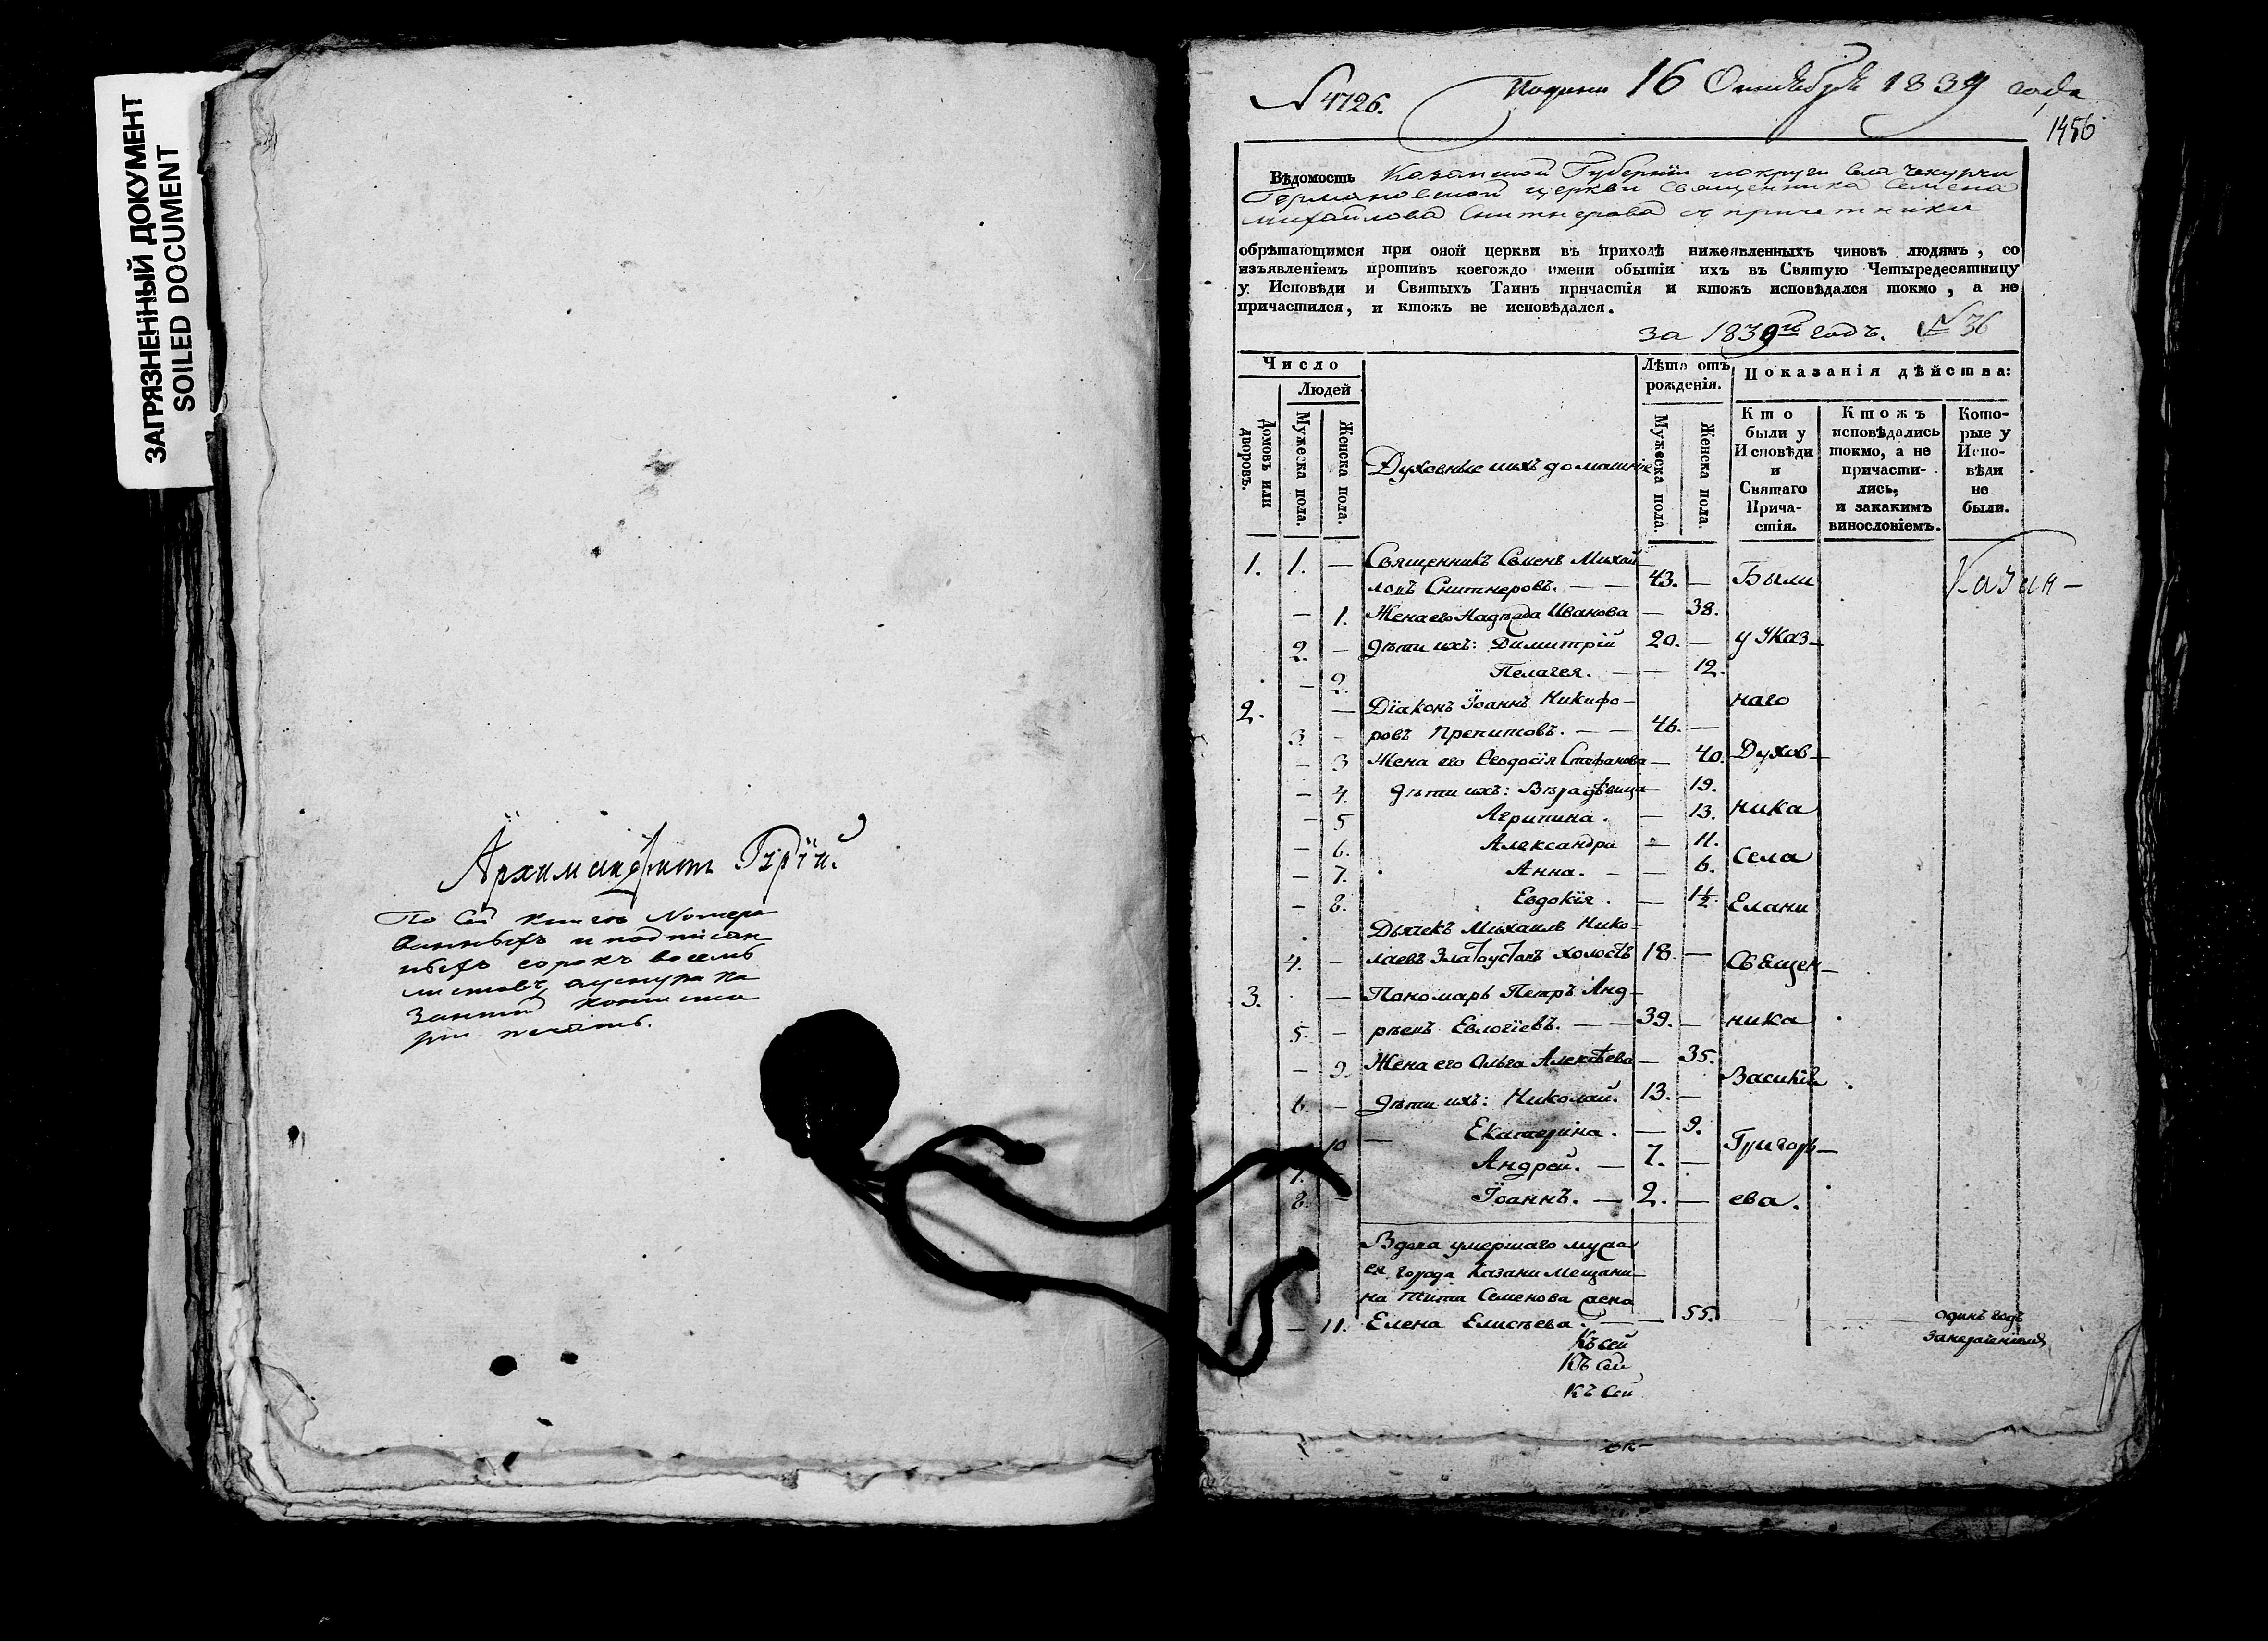 ЗАГРЯЗНЕННЫЙ ДОКУМЕНТ
SOILED DOCUMENT
Архимандритъ Гурїй.
По сей книгѣ Номеро
ванныхъ и подписан
ныхъ сорокъ восемь
листовъ
печать.
N 4726.
16 Октября 1839 года
1456
Вѣдомость Казанской Губернїи и округи села Чекурчи
Германовской церкви священника Семена
Михайлова Снитнерова съ причетники
обрѣтающимся при оной церкви въ приходѣ нижеявленныхъ чиновъ людямъ, со
изъявленіемъ противъ коегождо имени обытіи ихъ въ Святую Четыредесятницу
у Исповѣди и Святыхъ Таинъ причастія и ктожъ исповѣдался токмо, а не
причастился, и ктожъ не исповѣдался.
за 1839й годъ. № 36
Число
Людей
Домовъ или дворовъ.
Мужеска пола.
Женска пола.
Духовные и ихъ домашніе
Лѣта отъ рожденія.
Мужеска пола.
Женска пола.
Показанія дѣйства:
Кто были у Исповѣди и Святаго Причастія.
Ктожъ исповѣдались токмо, а не причастились, и закакимъ винословіемъ.
Которые у Исповѣди не были.
1. 1. — Священникъ Семенъ Михай
ловъ Снитнеровъ. — — 43. — Были
Казан—
— 1. Жена его Надежда Иванова — 38.
2. — Дѣти ихъ: Димитрїй 20. — у Указ—
— 2. Пелагея. — — 12.
2. — Дїаконъ Іоаннъ Никифо— наго
3. — ровъ Препитовъ. — — 46. —
— 3 Жена его Ѳеодосїя Стефанова — 40. Духов—
— 4. Дѣти ихъ: Вѣра дѣвица — 19.
— 5 Агрипина. — 13. ника
— 6. Александра — 11.
— 7. Анна. — — 6. Села
— 8. Евдокїя. — 1½. Елани
Дьячекъ Михаилъ Нико—
4. — лаевъ Златоустовъ холостъ 18. — Священ—
3. — Пономарь Петръ Анд—
5. — рѣевъ Евлогїевъ. — — 39. — ника
— 9. Жена его Ольга Алексѣева — 35.
Василїя
6. — Дѣти ихъ: Николай. 13. —
10 — Екатерина. — 9.
Григорь—
7. Андрей. — 7. —
8. — Іоаннъ. — 2. — ева.
Вдова умершаго мужа
ея города Казани Мещани—
на Тита Семенова жена
— 11. Елена Елисѣева. — — 55. один годъ
Къ сей
Къ сей
Къ сей